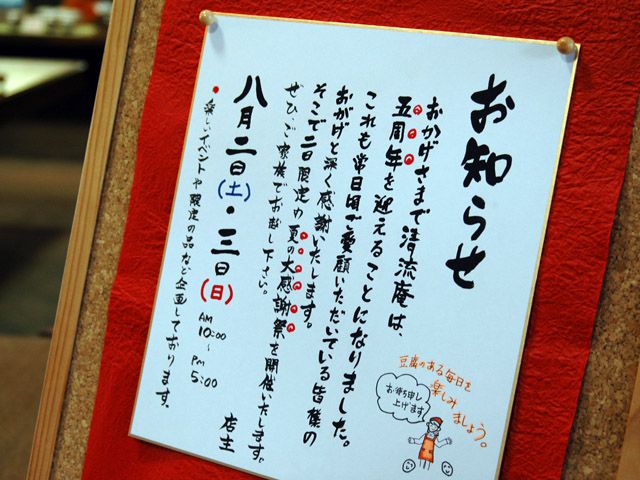 お知らせ
おかげさまで清流庵は、
五周年を迎えることになりました。
これも常日頃ご愛顧いただいている皆様の
おかげと深く感謝いたします。
そこで二日限定の夏の大感謝祭を開催いたします。
ぜひ、ご家族でお越し下さい。
八月二日(土)・三日(日)
AM
10:00
~
PM
5:00
・楽しいイベントや限定の品など企画しております。
店主
豆腐のある毎日を
楽しみましょう。
お待ち申し
上げます